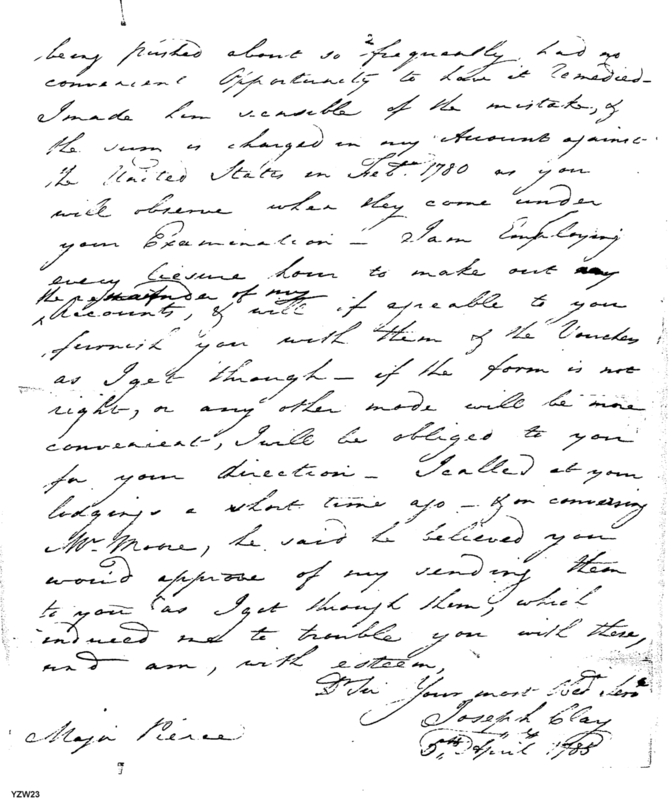 being pushed about so frequently had no
convenient Opportunity to have it remedied—
I made him sensible of the mistake, &
the sum is charged in my Account against
the United States in Feby. 1780 as you
will observe when they come under
your Examination — I am Employing
every liesure hour to make out
the remainder of my
Accounts, & will if agreable to you
furnish you with them & the Vouchers
as I get through — if the form is not
right, or any other mode will be more
convenient, I will be obliged to you
for your direction — I called at your
lodgings a short time ago — & on conversing
Mr. Moore, he said he believed you
would approve of my sending them
to you as I get through them, which
induced me to trouble you with these,
and am, with esteem,
Dr Sir Your most Obed Servt
Joseph Clay
5th April 1785
Major Pierce
YZW23